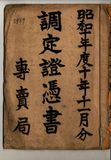 昭和十年度十年十一月分
調定證憑書
專賣局